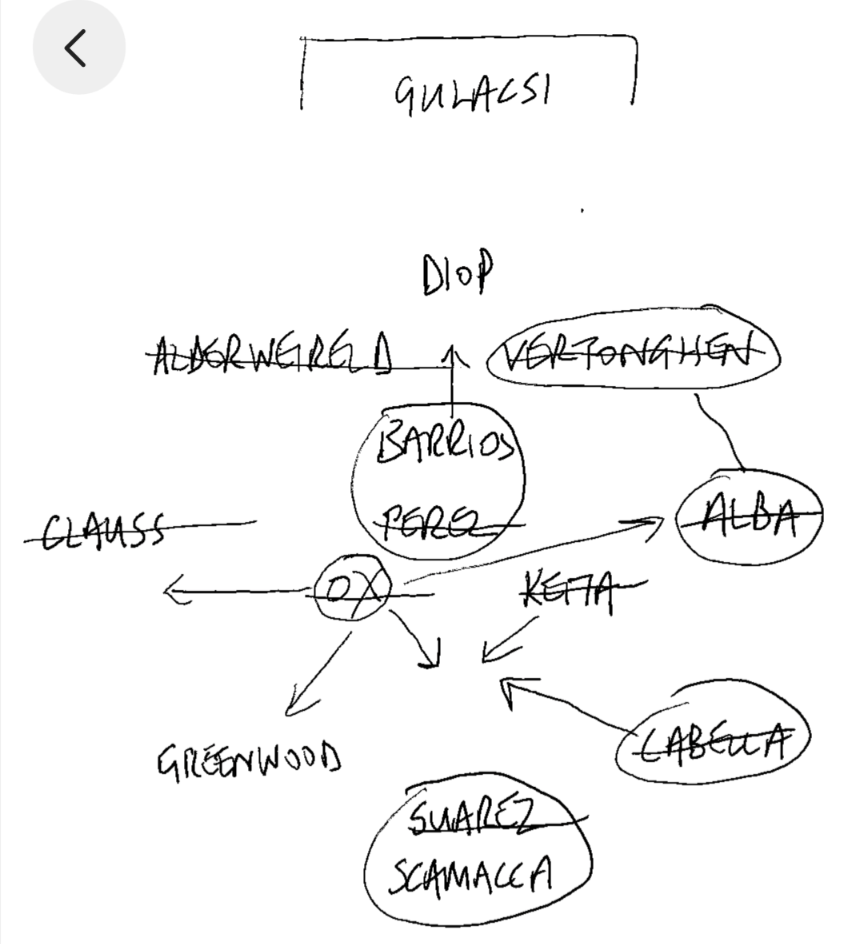 GULACSI
DIOP
ALDERWEIRELD
VERTONGHEN
BARRIOS
PEREZ
ALBA
CLAUSS
OX
KEITA
CABELLA
GREENWOOD
SUAREZ
SCAMACCA